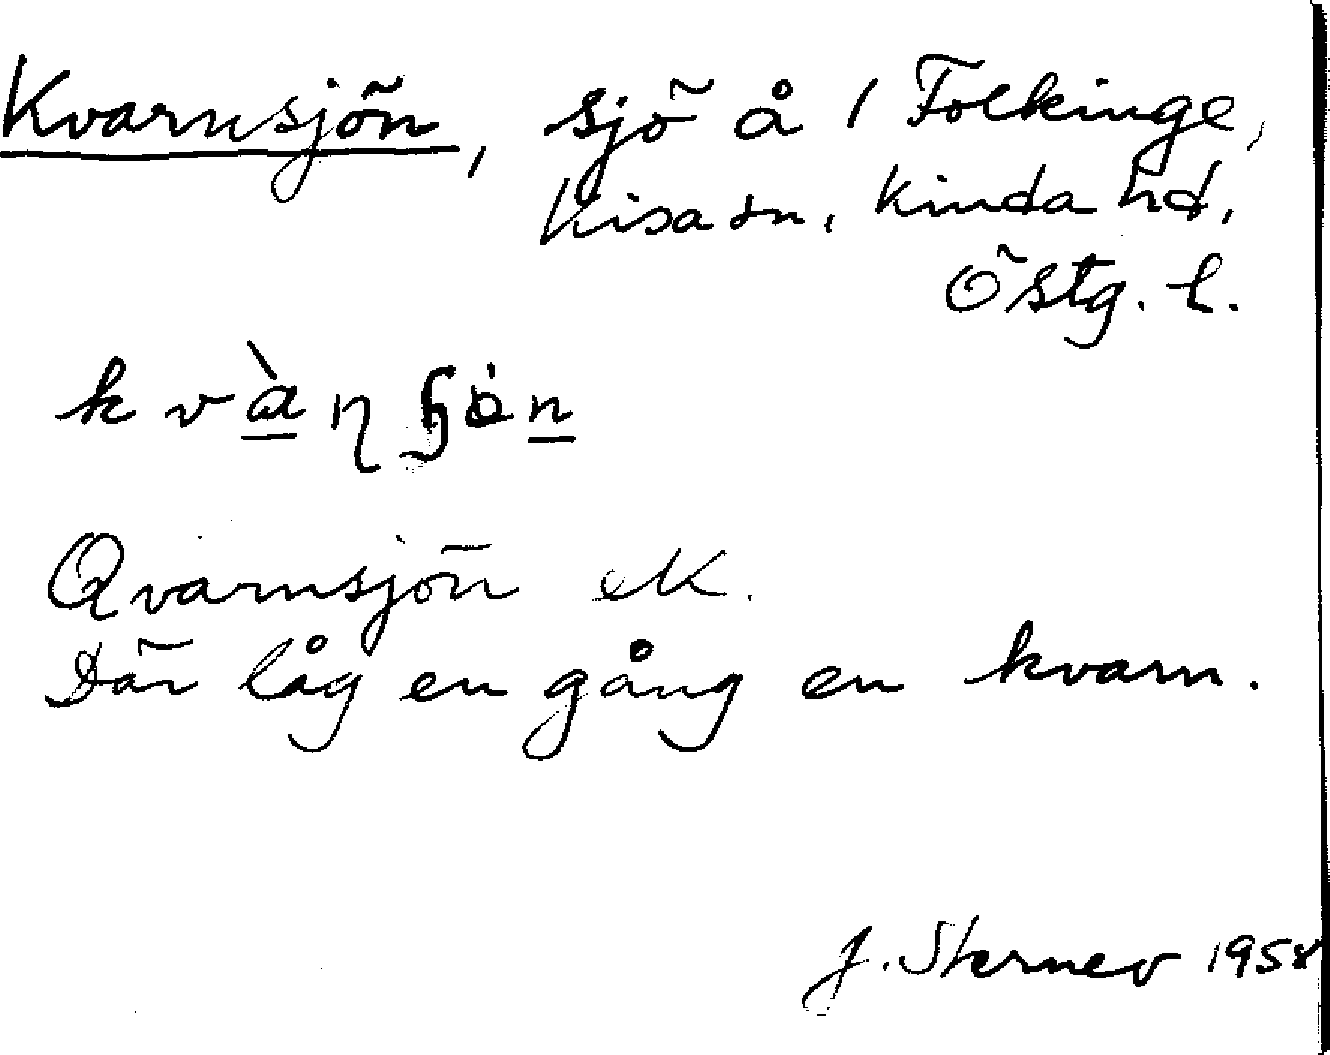 Kvarnsjön, sjö å 1 Folkinge,
Kisa sn, Kinda hd,
Östg. l.
kvàɳɧön
Qvarnsjön eK.
Där låg en gång en kvarn.
J. Sterner 1958